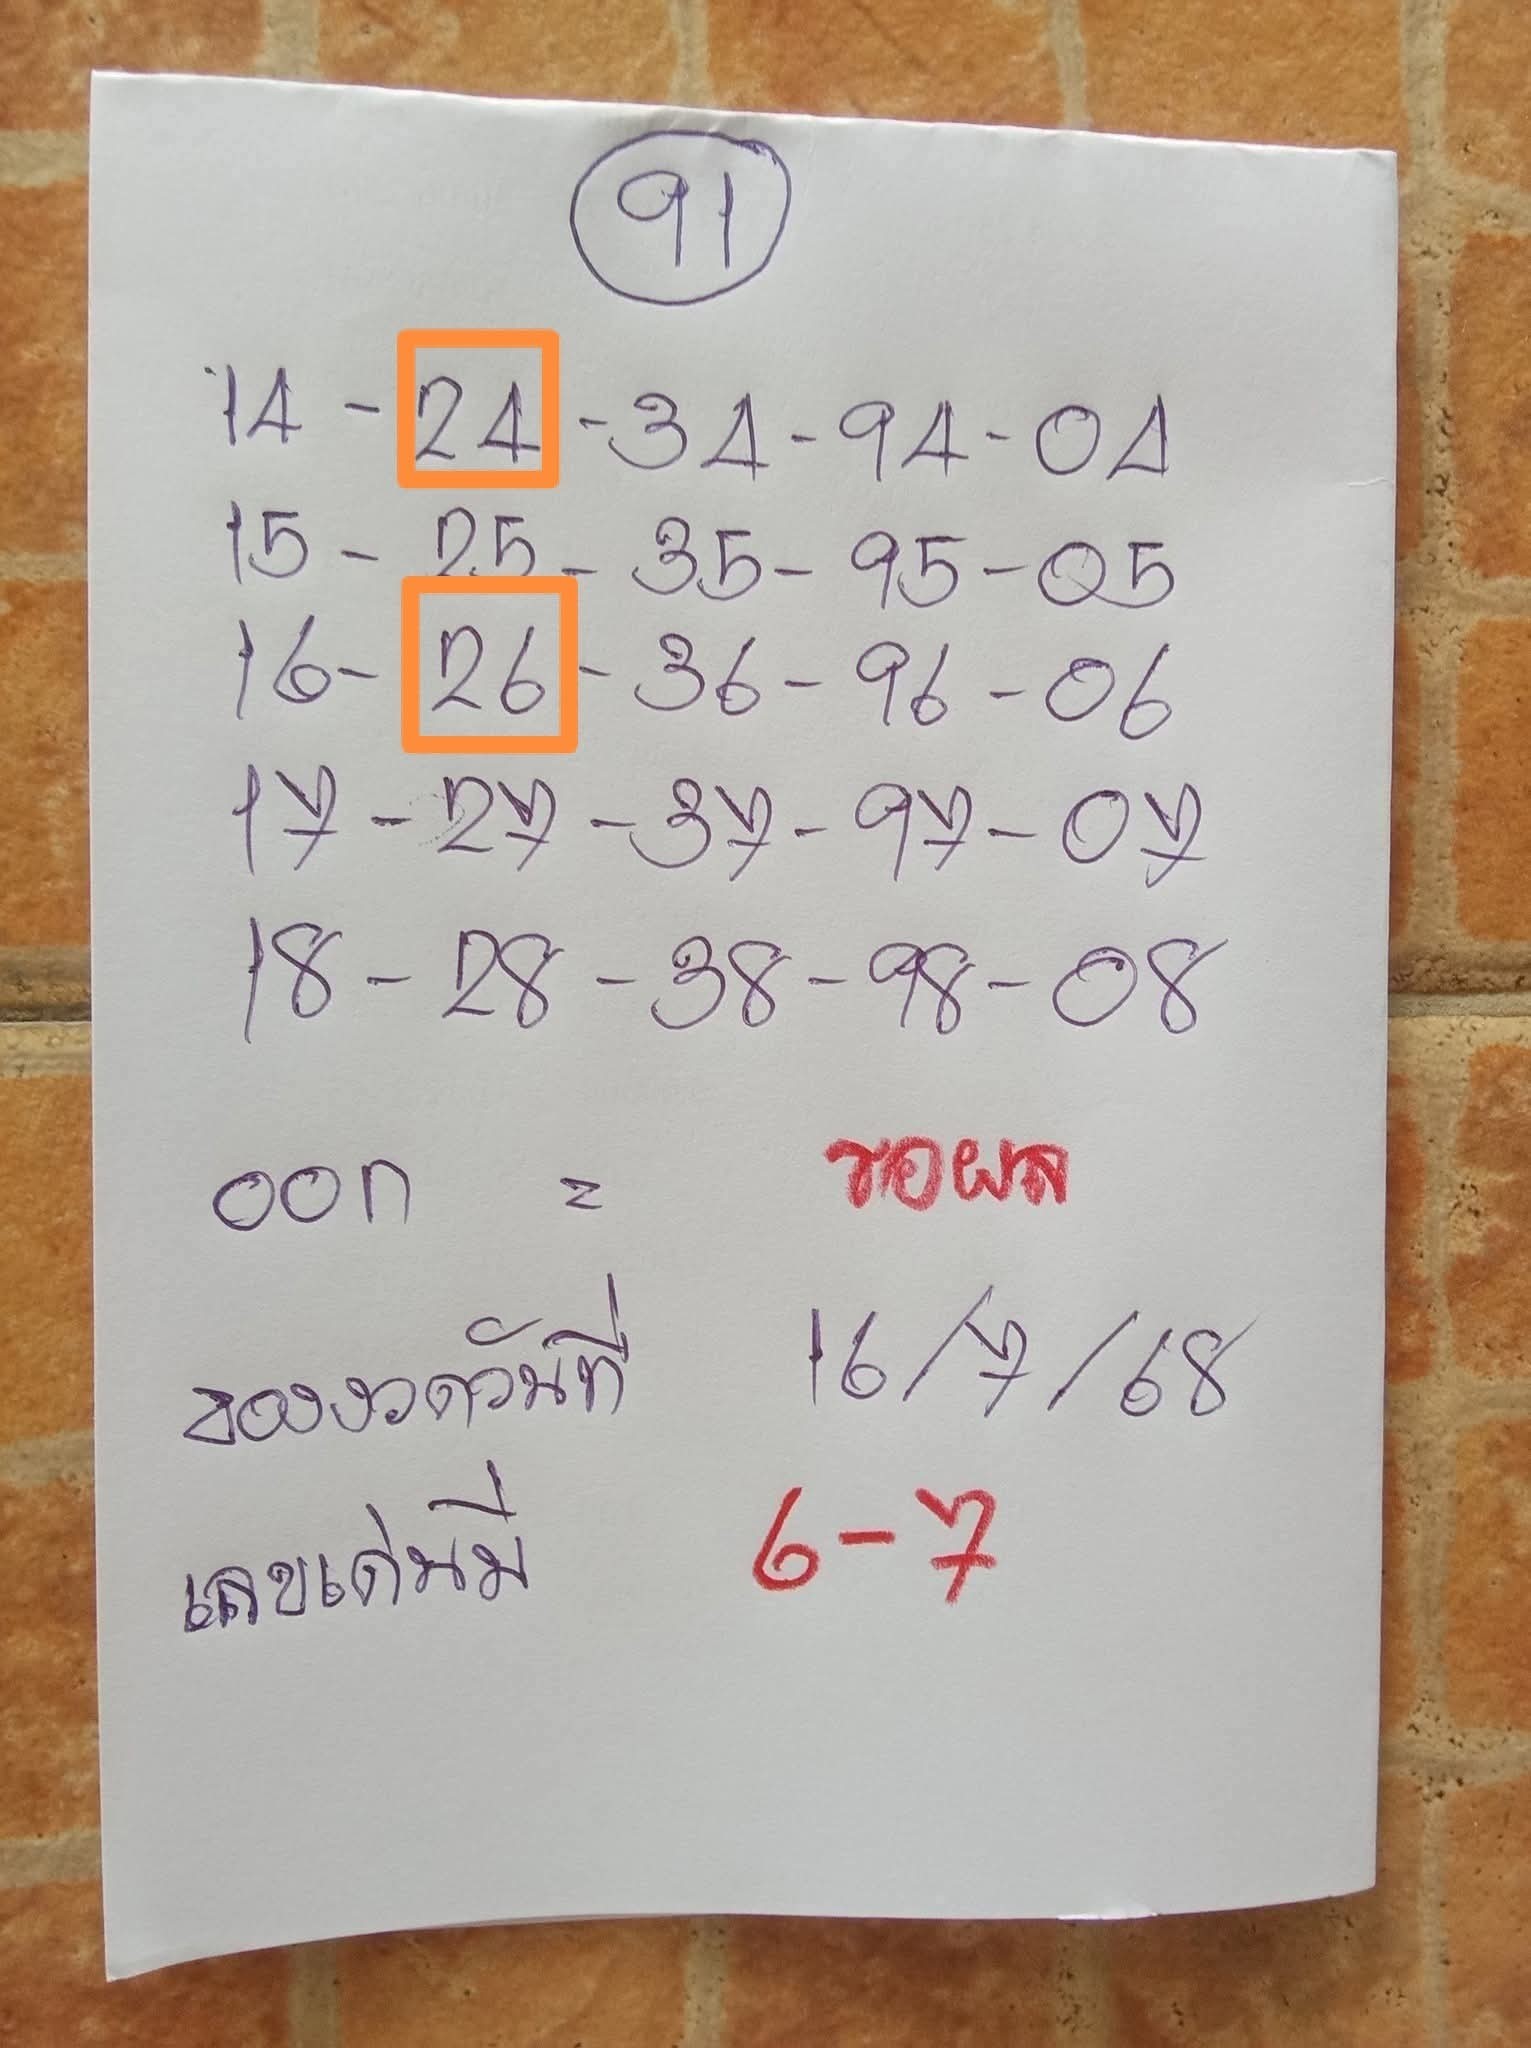 91
14 - 24 - 34 - 94 - 04
15 - 25 - 35 - 95 - 05
16 - 26 - 36 - 96 - 06
17 - 27 - 37 - 97 - 07
18 - 28 - 38 - 98 - 08
ออก = รอผล
ของงวดวันที่ 16/7/68
เลขเด่นมี 6-7